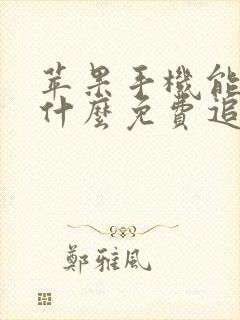 苹果手機能
什麼免費追
鄭雅風